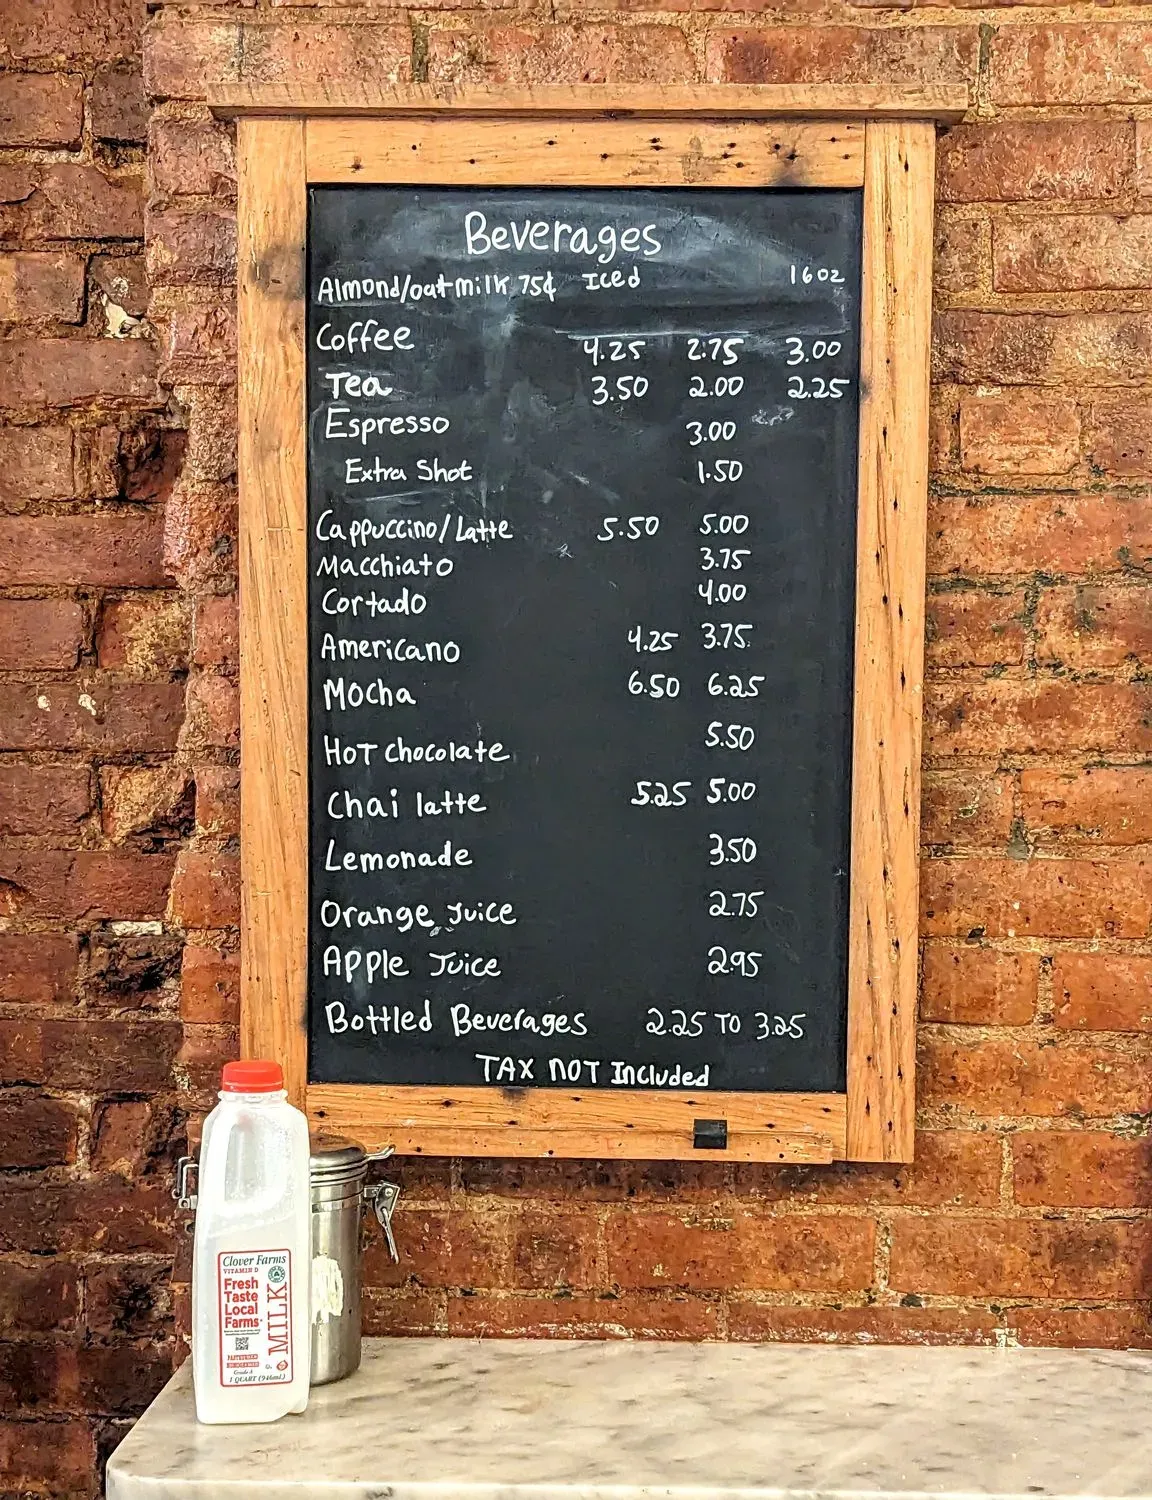 Beverages
Almond/oat milk 75¢ Iced 16oz
Coffee 4.25 2.75 3.00
Tea 3.50 2.00 2.25
Espresso 3.00
Extra Shot 1.50
Cappuccino/Latte 5.50 5.00
Macchiato 3.75
Cortado 4.00
Americano 4.25 3.75
Mocha 6.50 6.25
Hot chocolate 5.50
Chai latte 5.25 5.00
Lemonade 3.50
Orange Juice 2.75
Apple Juice 2.95
Bottled Beverages 2.25 TO 3.25
TAX NOT Included
Clover Farms
VITAMIN D
Fresh
Taste
Local
Farms
MILK
Grade A
1 QUART (946mL)